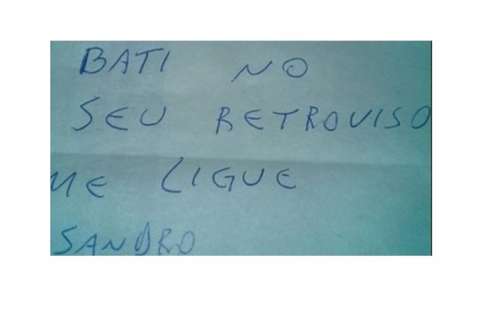 BATI NO
SEU RETROVISO
ME LIGUE
SANDRO